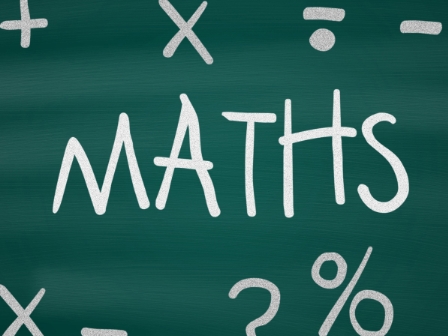 + × ÷ −
MATHS
× − ? %